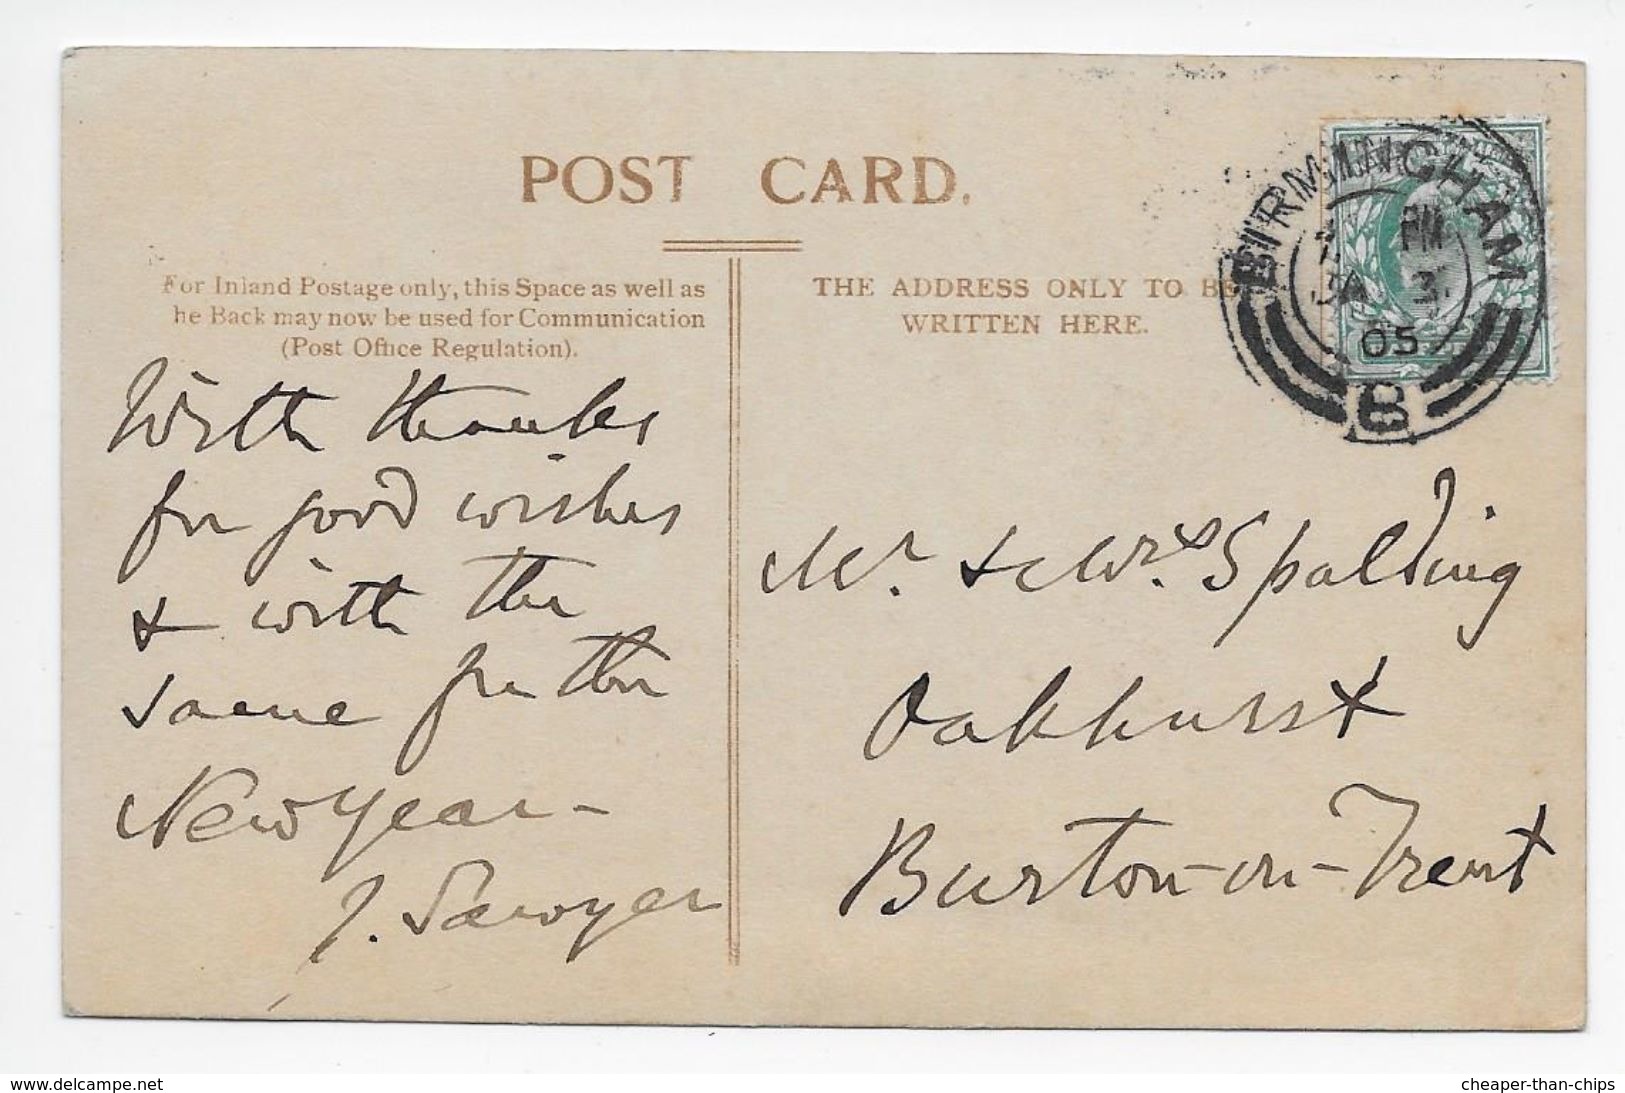 POST CARD.
For Inland Postage only, this Space as well as
he Back may now be used for Communication
(Post Office Regulation).
THE ADDRESS ONLY TO BE
WRITTEN HERE.
BIRMINGHAM
PM
JA 3
05
B
With thanks
for good wishes
& with the
same for the
New Year -
J. Sawyer
Mr. & Mrs. Spalding
Oakhurst
Burton-on-Trent
www.delcampe.net
cheaper-than-chips